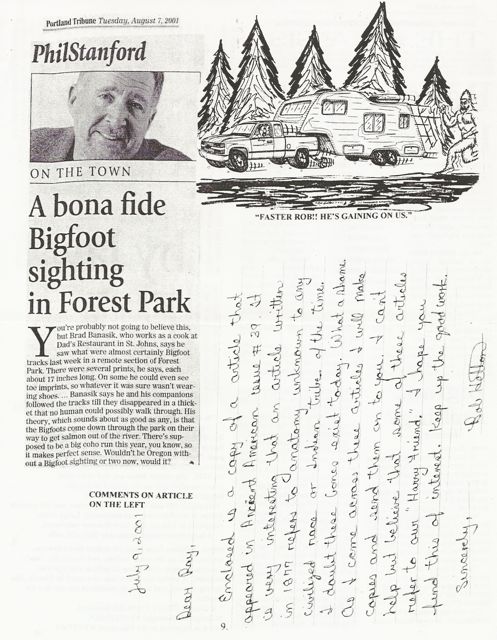 Portland Tribune Tuesday, August 7, 2001
PhilStanford
ON THE TOWN
A bona fide
Bigfoot
sighting
in Forest Park
You're probably not going to believe this,
but Brad Banasik, who works as a cook at
Dad's Restaurant in St. Johns, says he
saw what were almost certainly Bigfoot
tracks last week in a remote section of Forest
Park. There were several prints, he says, each
about 17 inches long. On some he could even see
toe imprints, so whatever it was sure wasn't wear-
ing shoes. ... Banasik says he and his companions
followed the tracks till they disappeared in a thick-
et that no human could possibly walk through. His
theory, which sounds about as good as any, is that
the Bigfoots come down through the park on their
way to get salmon out of the river. There's sup-
posed to be a big coho run this year, you know, so
it makes perfect sense. Wouldn't be Oregon with-
out a Bigfoot sighting or two now, would it?
"FASTER ROB!! HE'S GAINING ON US."
COMMENTS ON ARTICLE
ON THE LEFT
July 9, 2001
Dear Ray,
Enclosed is a copy of a article that
appeared in Ancient American issue #39. It
is very interesting that an article written
in 1877 refers to anatomy unknown to any
civilized race or Indian tribe of the time.
I doubt these bones exist today. What a shame.
As I come across these articles I will make
copies and send them on to you. I can't
help but believe that some of these articles
refer to our "Harry Friend." I hope you
find this of interest. Keep up the good work.
Sincerely,
9.